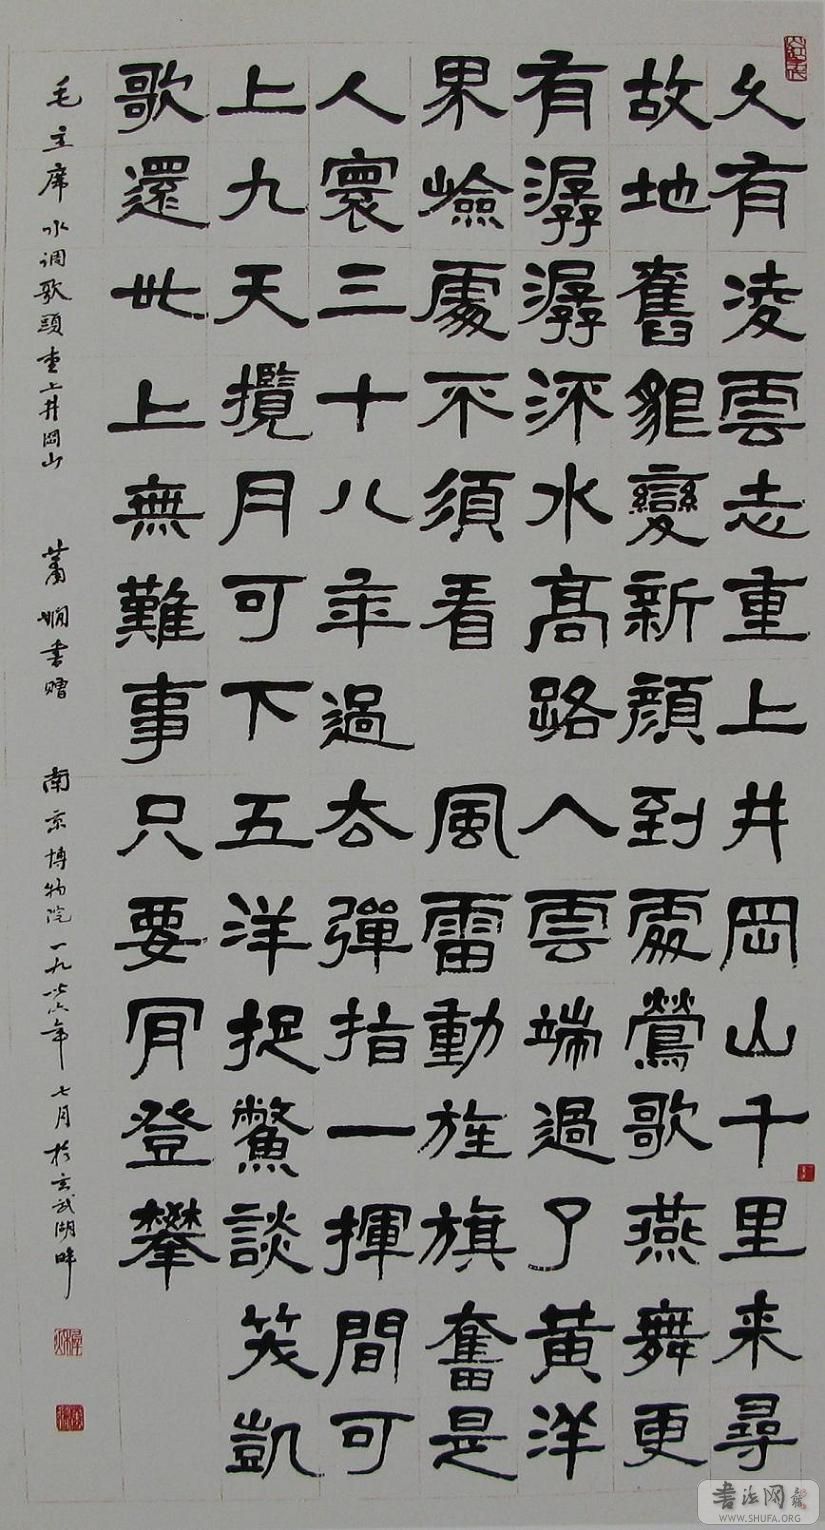 久有凌雲志重上井岡山千里来尋
故地舊貌變新顔到處鶯歌燕舞更
有潺潺流水高路入雲端過了黄洋
界嶮處不須看 風雷動旌旗奮是
人寰三十八年過去彈指一揮間可
上九天攬月可下五洋捉鱉談笑凱
歌還世上無難事只要肎登攀
毛主席水调歌頭重上井岡山 萧嫻書赠 南京博物院一九七六年七月於玄武湖畔
書法网
WWW.SHUFA.ORG